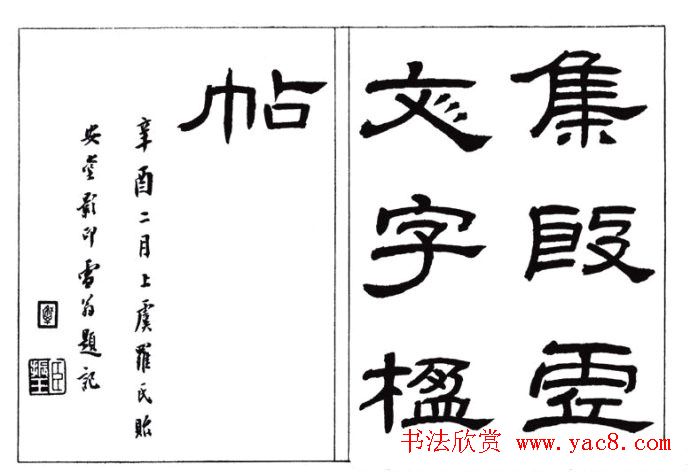 集殷虛
文字楹
帖
辛酉二月上虞羅氏貽
安堂影印雪翁題記
书法欣赏 www.yac8.com